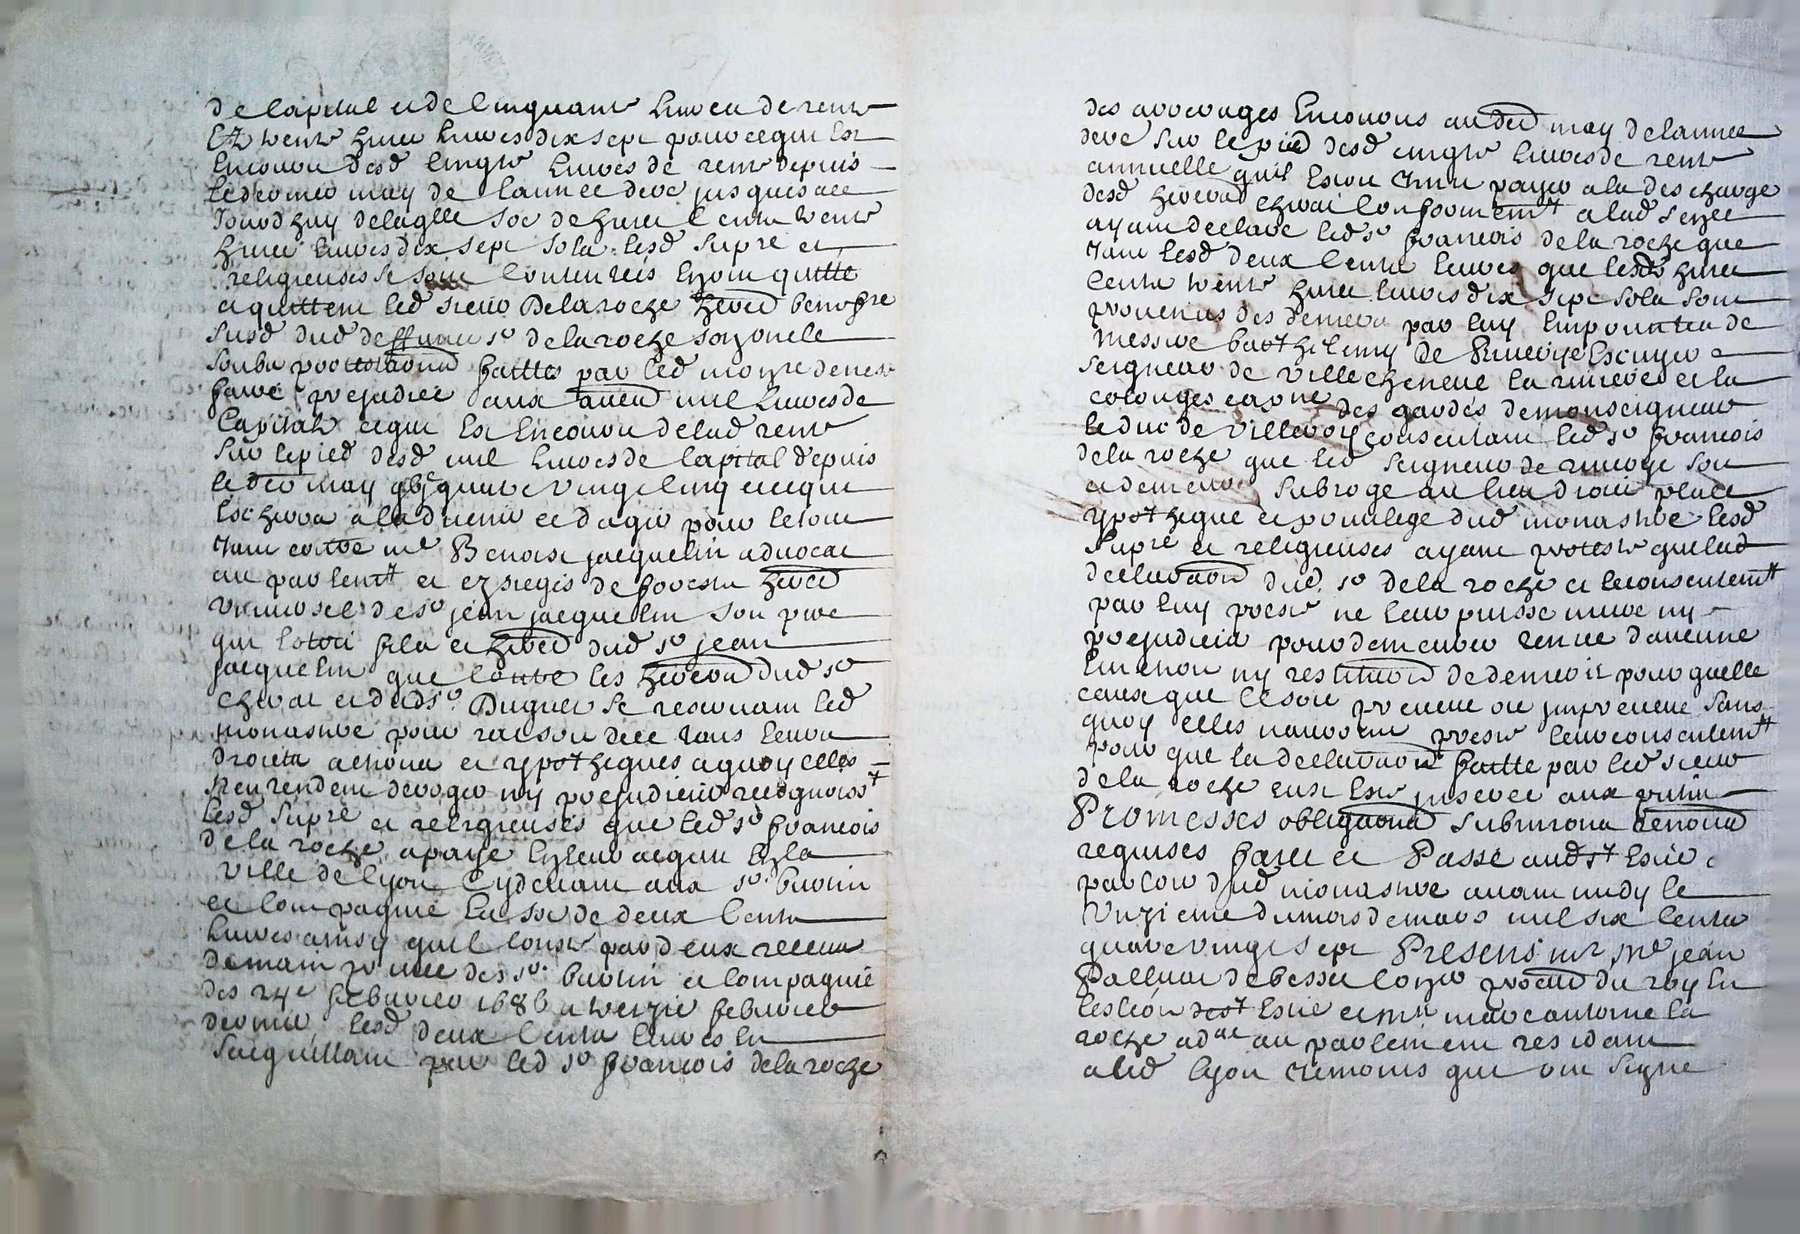 de capital et de cinquante livres de rente
Et trente huict livres dix sept pour ce qui est
encouru desd cinqte livres de rente depuis
le dernier may de lannee dere jusques a ce
jourdhuy de laqlle soe de huict cents trente
huict livres dix sept sols lesd supre et
religieuses se sont contentees et ont quitté
et quittent led sieur Delaroche hered benefre
susd dud deffunct sr de la roche son oncle
soubs protestaons faittes par led monre de ne se
faire prejudice aux aues mil livres de
capital et qui est encouru de lad rente
sur le pied desd mil livres de capital depuis
le der may quatre vingt cinq et ce qui
escherra a laduenir et dagir pour le tout
tant contre me Benoist jacquelin aduocat
au parlemt et ez sieges de forests hered
uniuersel de sr jean jacquelin son pere
qui estoit fils et hered dud sr jean
jacquelin que contre les heredrs dud sr
Charat et dud sr Duguet se reseruant led
monastere pour raison dice tous leurs
droicts actions et ypotheques a quoy elles
nentendent deroger ny prejudicier recognoisst
lesd supre et religieuses que led sr francois
de la roche a paye en leur acquit en la
ville de lyon cydeuant aux sr. burtin
et compagnie la soe de deux cents
livres ainsy quil conste par deux receus
de main priuee des sr. burtin et compagnie
des 24e febvrier 1686 et treize febvrier
dernier lesd deux cents livres en
sacquittant par led sr francois de la roche
des arrerages encourus au der may de lannee
dere sur le pied desd cinqte livres de rente
annuelle quil estoit tenu payer a la descharge
desd heredrs charat conformemt a lad sence
ayant declaré led sr francois de la roche que
tant lesd deux cents livres que lesds huict
cents trente huict livres dix sept sols sont
prouenus des deniers par luy empruntes de
messire barthelemy de Riuerye Escuyer
seigneur de villecheneue la riuiere et la
colonges capne des gardes de monseigneur
le duc de villeroy consentant led sr francois
de la roche que led seigneur de riuerye soit
et demeure subrogé au lieu droict place
ypotheque et priuilege dud monastere lesd
supre et religieuses ayant protesté que lad
declaraon dud. sr de la roche et le consentemt
par luy presté ne leur puisse nuire ny
prejudicier pour demeurer tenue daucune
euiction ny restitution de deniers pour quelle
cause que ce soit preueue ou jmpreueue sans
quoy elles nauroint presté leur consentemt
pour que la declaration faitte par led sieur
de la roche eust esté jnseree aux putes
Promesses obligaons submissions renons
requises faict et Passé aud st Estie
parloir dud monastere auant midy le
Unzieme du mois de mars mil six cents
quatre vingt sept Presens mr me jean
Palluat de besset coner procur du roy en
lesleon dest Estie et mr marc antoine la
roche adat au parlement residant
a led lyon temoins qui ont signe